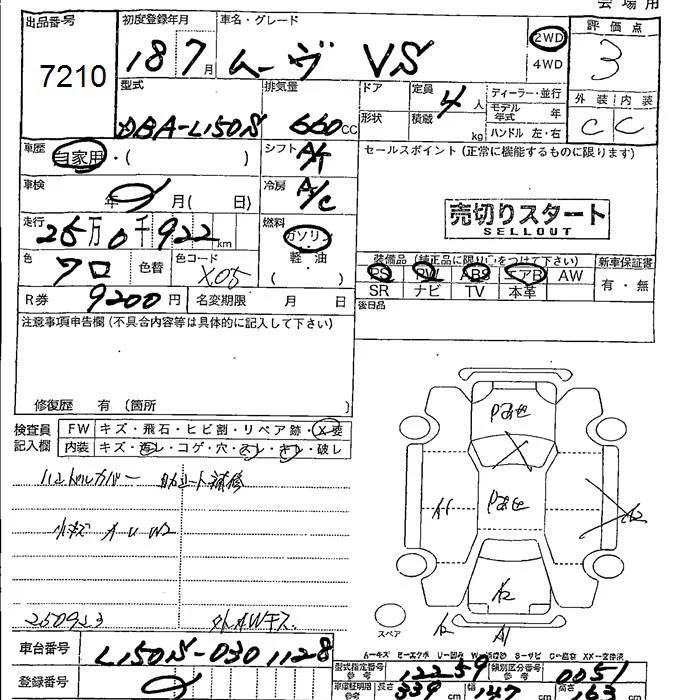 会場用
出品番号
7210
初度登録年月
18 7月
車名・グレード
ムーヴ VS
2WD
4WD
評価点
3
外装 内装
C C
型式
DBA-L150S
排気量
660cc
ドア
形状
定員
4人
積載
kg
ディーラー・並行
モデル年式 年
ハンドル 左・右
車歴
自家用・( )
シフト
A/T
セールスポイント(正常に機能するものに限ります)
車検
年 月( 日)
冷房
A/C
売切りスタート
SELLOUT
走行
25万0千922km
燃料
ガソリン
軽・油
色
クロ
色替
色コード
X05
装備品(純正品に限り○をつけて下さい)
PS PW ABS エアB AW
SR ナビ TV 本革
新車保証書
有・無
R券
9200円
名変期限 月 日
後日品
注意事項申告欄(不具合内容等は具体的に記入して下さい)
修復歴 有(箇所 )
検査員記入欄
FW キズ・飛石・ヒビ割・リペア跡・X要
内装 キズ・汚レ・コゲ・穴・スレ・キレ・破レ
ハンドルカバー
小キズ A U W2
250923
外AWキズ
Pあせ
X
Pあせ
A1
A2
A2
A1
スペア
A=キズ E=エクボ U=凹み
車台番号
L150S-0301128
登録番号
型式指定番号 参考
12259
類別区分番号 参考
0051
車検証期間 参考
長さ
339cm
幅
147cm
高さ
163cm